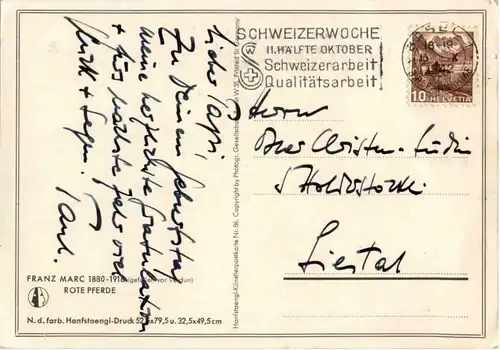 SCHWEIZERWOCHE
II. HÄLFTE OKTOBER
Schweizerarbeit
Qualitätsarbeit
10 HELVETIA
Lieber Papi,
Zu Deinem Geburtstag
meine herzlichste Gratulation
+ fürs nächste Jahr viel
Glück + Segen.
Paul.
Herrn
Liestal
FRANZ MARC 1880-1916 (gefallen vor Verdun)
ROTE PFERDE
N. d. farb. Hanfstaengl-Druck 52,5x79,5 u. 32,5x49,5 cm
Hanfstaengl-Künstlerpostkarte Nr. 86. Copyright by Photogr. Gesellschaft, Printed in Germany